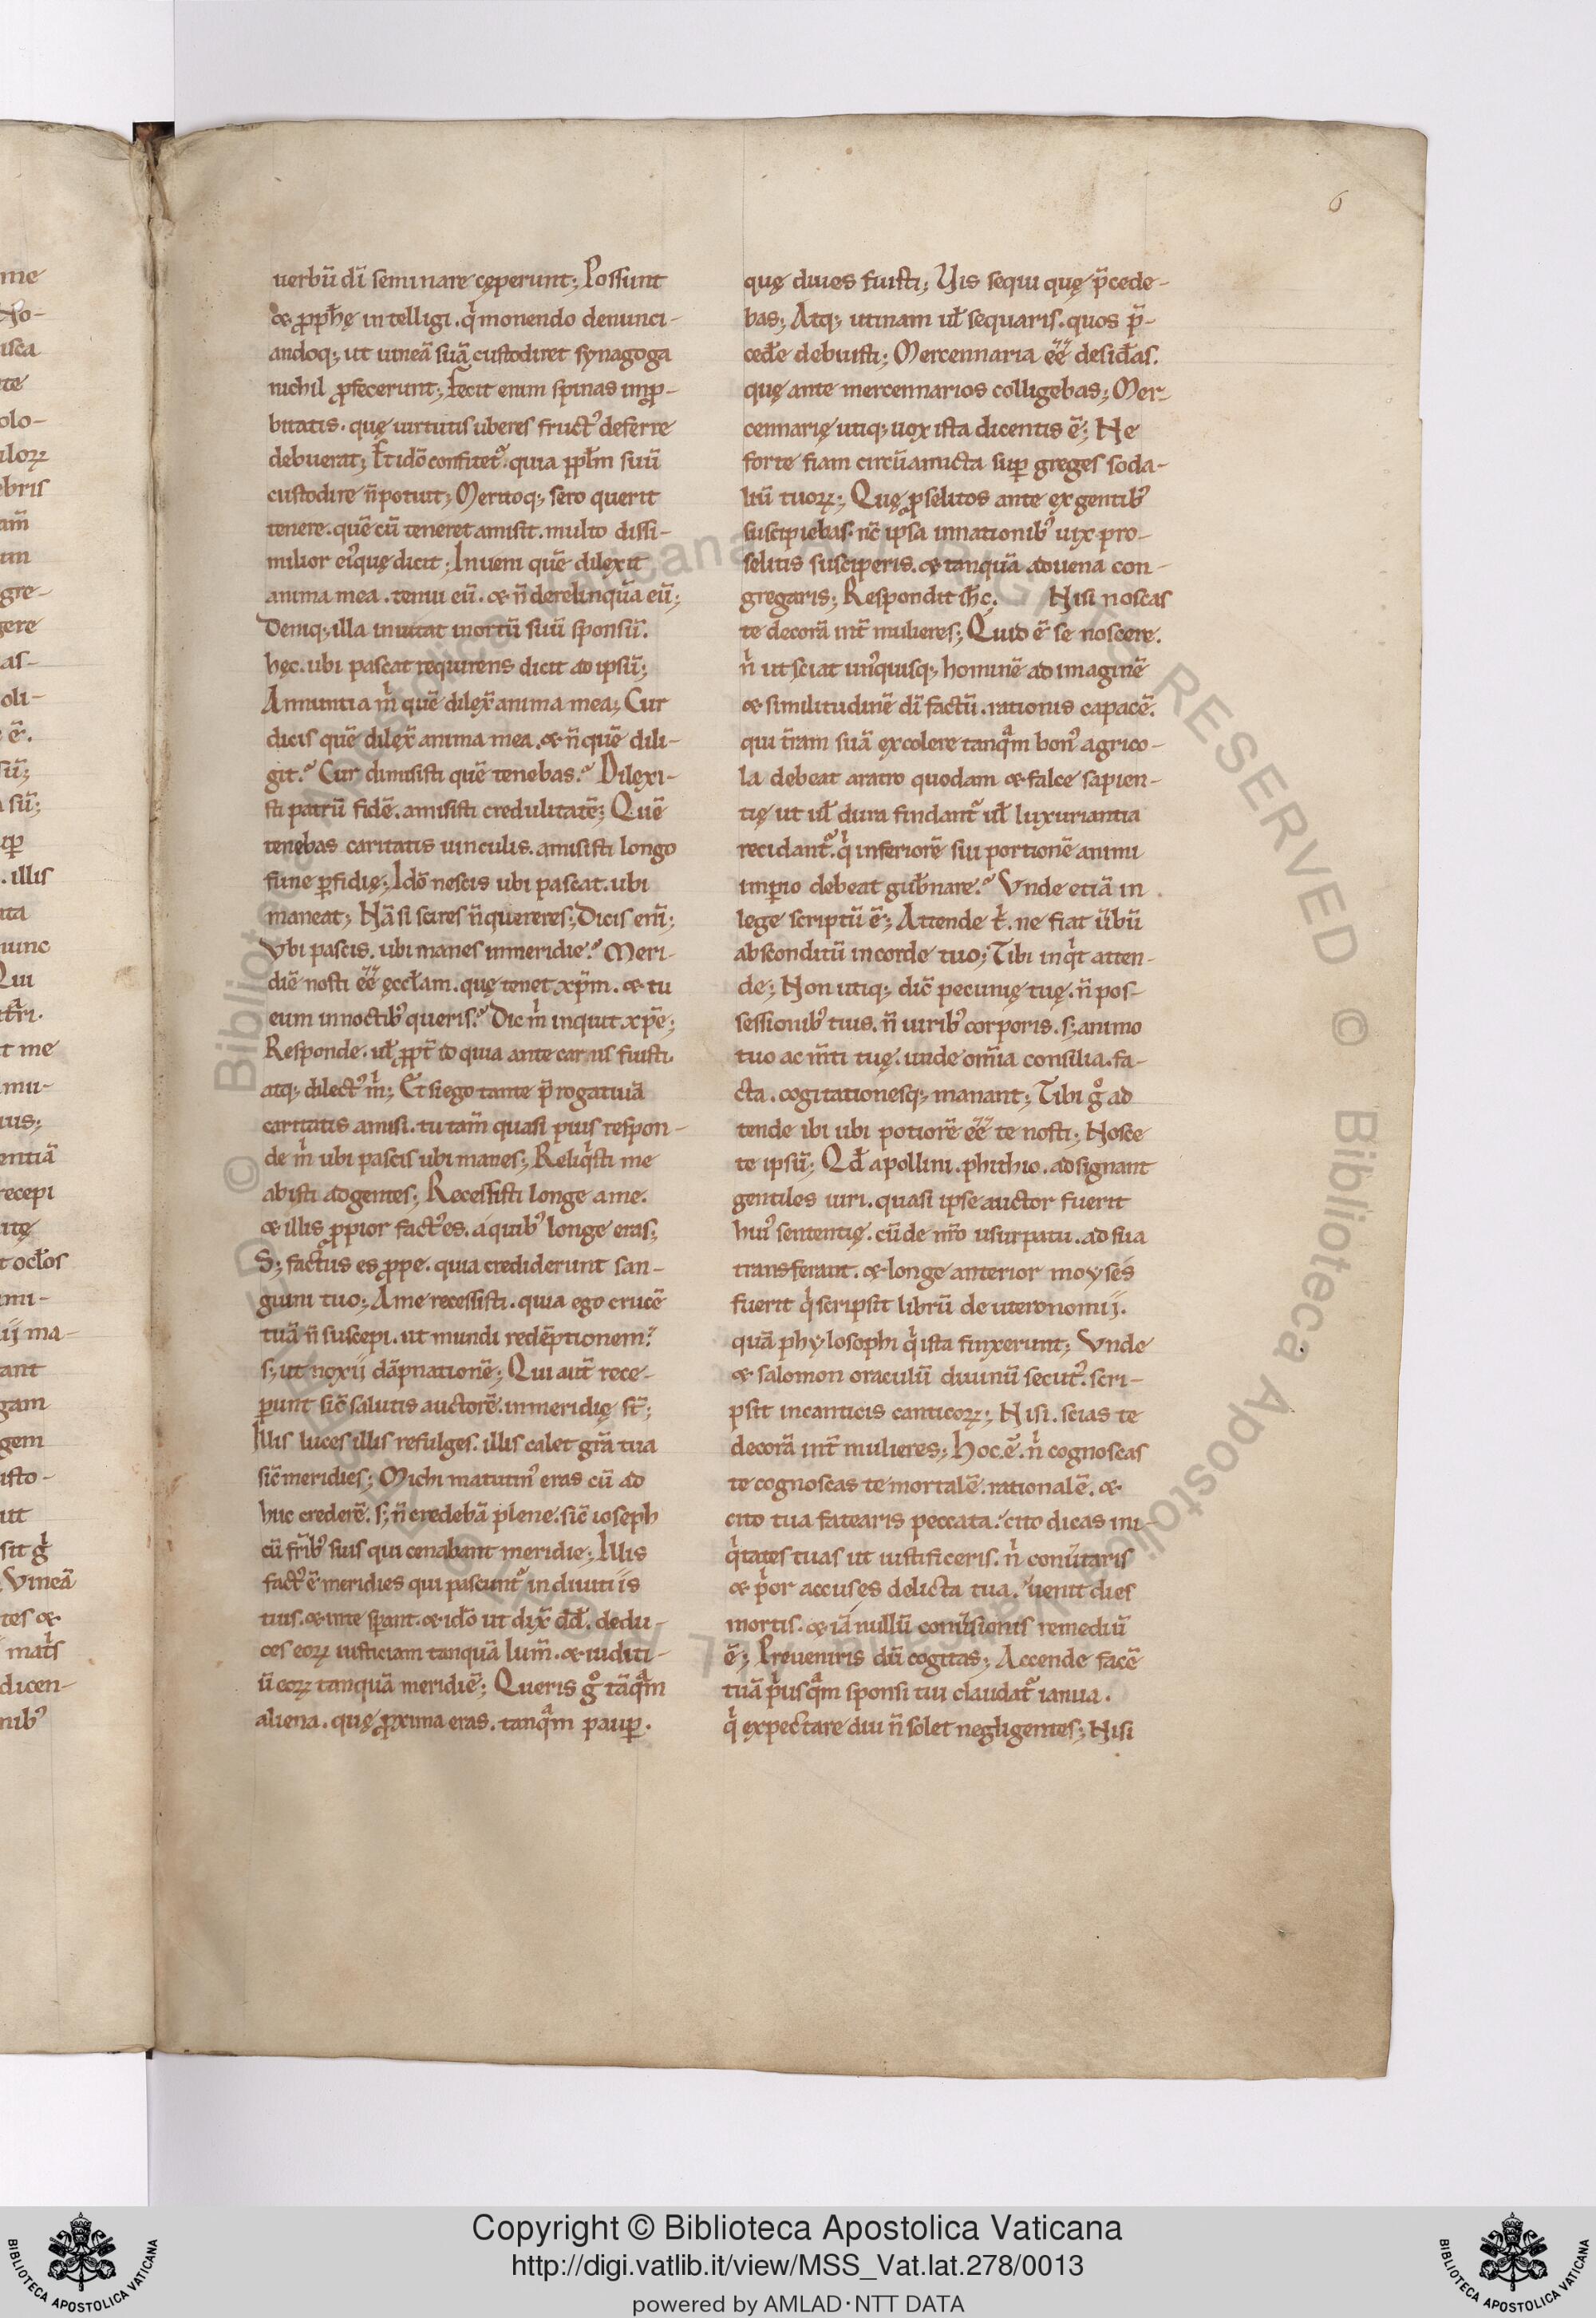 6
uerbū dī seminare cęperunt; Possunt
& ꝓph̄ę intelligi. q̍ monendo denunci-
andoq; ut uineā suā custodiret synagoga
nichil ꝓfecerunt; Fecit enim spinas imꝓ-
bitatis. quę uirtutis uberes fruct᾽ deferre
debuerat; Et idō confitet᷑. quia pp̄l̄m suū
custodire n̄ potuit; Meritoq; sero querit
tenere. quē cū teneret amisit. multo dissi-
milior ei᾽ quę dicit; Inueni quē dilexit
anima mea. tenui eū. & n̄ derelinquā eū;
Deniq; illa inuitat inortū suū sponsū.
hęc. ubi pascat requirens dicit ad ipsū;
Annuntia m̍ quē dilex̄ anima mea; Cur
dicis quē dilex̄ anima mea. & n̄ quē dili-
git? Cur dimisisti quē tenebas? Dilexi-
sti patrū fidē. amisisti credulitatē; Quē
tenebas caritatis uinculis. amisisti longo
fune ꝑfidię; Idō nescis ubi pascat. ubi
maneat; Nā si scires n̄ quereres; Dicis eni̅;
Vbi pascis. ubi manes inmeridie? Meri-
diē nosti ēē ęccl̄am. quę tenet xp̄m. & tu
eum innoctib᾽ queris? Dic m̍ inquit xp̄e;
Responde. ul̄ ꝓpt̄ id quia ante carnis fuisti.
atq; dilect᾽ m̍; Et si ego tante p̄rogatiuā
caritatis amisi. tu tam̄ quasi pius respon-
de m̍ ubi pascis ubi manes; Reliq̍sti me
abisti adgentes; Recessisti longe ame.
& illis ꝓpior fact᾽ es. aquib᾽ longe eras;
S; factus es ꝓpe. quia crediderunt san-
guini tuo; Ame recessisti. quia ego crucē
tuā n̄ suscepi. ut mundi redēptionem.
s; ut noxii dāpnationē; Qui aut̄ rece-
ꝑunt sic̄ salutis auctorē. inmeridię st̄;
Illis luces illis refulges. illis calet grā tua
sic̄ meridies; Michi matutin᾽ eras cū ad
huc crederē. s; n̄ credebā plene. sic̄ ioseph
cū fr̄ib᾽ suis qui cenabant meridie; Illis
fact᾽ ē meridies qui pascunt᷑ in diuitiis
tuis. & inte sꝑant. & idō ut dix̄ dd̄. dedu-
ces eoꝝ iusticiam tanquā lum̄. & iuditi-
ū eoꝝ tanquā meridiē; Queris gͦ tāqᵃm
aliena. quę ꝓxima eras. tanqᵃm pauꝑ.
quę diues fuisti; Vis sequi quę p̄cede-
bas; Atq; utinam ul̄ sequaris. quos p̄-
ced̄e debuisti; Mercennaria ēē desid̄as.
quę ante mercennarios colligebas; Mer-
cennarię utiq; uox ista dicentis ē; Ne
forte fiam circūamicta suꝑ greges soda-
liū tuoꝝ; Quę ꝓselitos ante ex gentib᾽
suscipiebas. nc̄ ipsa innationib᾽ uix pro-
selitis susciperis. & tanquā aduena con-
gregaris; Respondit sp̄c. Nisi noscas
te decorā int̄ mulieres; Quid ē se noscere.
n̍ ut sciat un᾽quisq; hominē ad imaginē
& similitudinē dī factū. rationis capacē.
qui t̄ram suā excolere tanqᵃm bon᾽ agrico-
la debeat aratro quodam & falce sapien-
tię ut ul̄ dura findant᷑ ul̄ luxuriantia
recidant᷑. q̍ inferiorē sui portionē animi
imꝑio debeat gub̄nare? Vnde etiā in
lege scriptū ē; Attende t̍. ne fiat ūbū
absconditū incorde tuo; Tibi inq̍t atten-
de; Non utiq; dic̄ pecunię tuę. n̄ pos-
sessionib᾽ tuis. n̄ uirib᾽ corporis. s; animo
tuo ac m̄ti tuę. unde om̄ia consilia. fa-
cta. cogitationesq; manant; Tibi gͦ ad
tende ibi ubi potiorē ēē te nosti; Nosce
te ipsū; Qd̄ apollini. phithio. adsignant
gentiles uiri. quasi ipse auctor fuerit
hui᾽ sententię. cū de nr̄o usurpatu. ad sua
transferant. & longe anterior moyses
fuerit q̍ scripsit librū deuteronomii.
quā phylosophi q̍ ista finxerunt; Vnde
& salomon oraculū diuinū secut᾽. scri-
psit incanticis canticoꝝ; Nisi. scias te
decorā int̄ mulieres; hoc. ē. n̍ cognoscas
te cognoscas te mortalē. rationalē. &
cito tua fatearis peccata. cito dicas ini-
q̍tates tuas ut iustificeris. n̍ conūtaris
& p̍or accuses delicta tua. uenit dies
mortis. & iā nullū conūsionis remediū
ē; Preueniris dū cogitas; Accende facē
tuā p̍usqᵃm sponsi tui claudat᷑ ianua.
q̍ expectare diu n̄ solet negligentes; Nisi
Copyright © Biblioteca Apostolica Vaticana
http://digi.vatlib.it/view/MSS_Vat.lat.278/0013
powered by AMLAD·NTT DATA